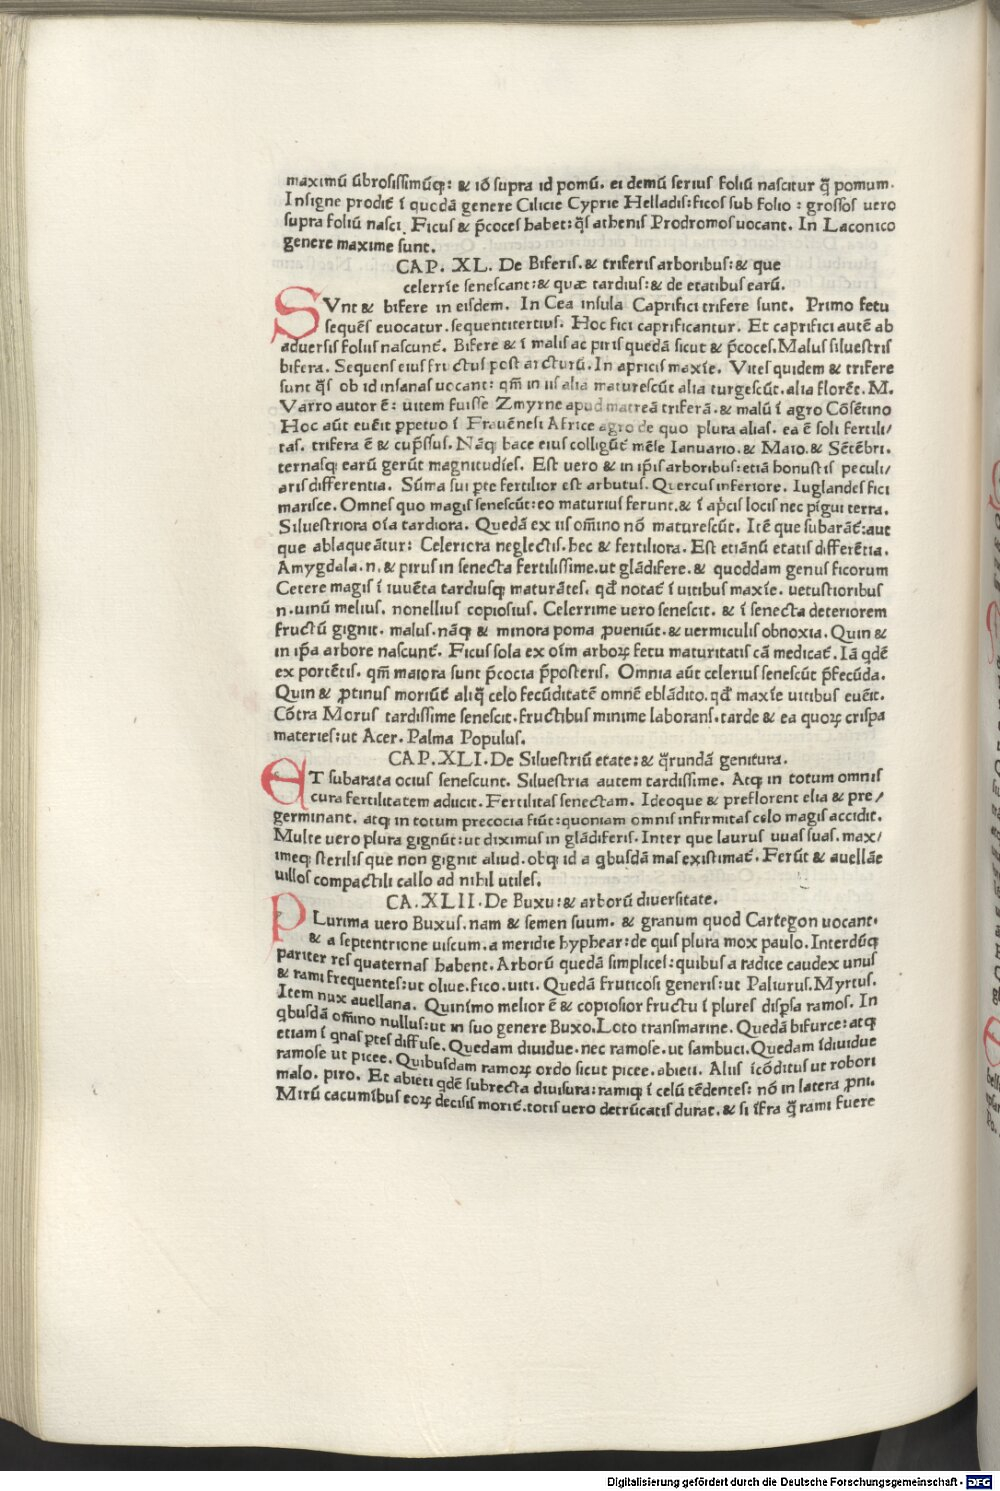 maximū ūbrosissimūq: & iō supra id pomū. ei demū serius foliū nascitur q̄ pomum.
Insigne prodit̄ ī quedā genere Cilicie Cyprie Helladis: ficos sub folio : grossos uero
supra foliū nasci. Ficus & p̄coces habet: q̄s athenis Prodromos uocant. In Laconico
genere maxime sunt.
CAP. XL. De Biferis. & triferis arboribus: & que
celerrīe senescant: & quæ tardius: & de etatibus earū.
SVnt & bifere in eisdem. In Cea insula Caprifici trifere sunt. Primo fetu
sequēs euocatur. sequentitertius. Hoc fici caprificantur. Et caprifici autē ab
aduersis foliis nascunt̄. Bifere & ī malis ac piris quedā sicut & p̄coces. Malus siluestris
bifera. Sequens eius fructus post arcturū. In apricis maxīe. Vites quidem & trifere
sunt q̄s ob id insanas uocant: qm̄ in iis alia maturescūt alia turgescūt. alia florēt. M.
Varro autor ē: uitem fuisse Zmyrne apud matreā triferā. & malū ī agro Cōsētino
Hoc aūt euēit ꝑpetuo ī Frauēnesi Africe agro de quo plura alias. ea ē soli fertili/
tas. trifera ē & cup̄ssus. Nāq bace eius colligūt̄ mēse Ianuario. & Maio. & Sētēbri.
ternasq earū gerūt magnitudīes. Est uero & in ip̄is arboribus: etiā bonustis peculi/
aris differentia. Sūma sui ꝑte fertilior est arbutus. Quercus inferiore. Iuglandes fici
marisce. Omnes quo magis senescūt: eo maturius ferunt. & ī ap̄cis locis nec pīgui terra.
Siluestriora oīa tardiora. Quedā ex iis om̄ino nō maturescūt. Itē que subarāt̄: aut
que ablaqueātur: Celeriora neglectis. hec & fertiliora. Est etiānū etatis differētia.
Amygdala. n. & pirus in senecta fertilissime. ut glādifere. & quoddam genus ficorum
Cetere magis ī iuuēta tardiusq maturātes. qd̄ notat̄ ī uitibus maxīe. uetustioribus
n. uinū melius. nonellius copiosius. Celerrime uero senescit. & ī senecta deteriorem
fructū gignit. malus. nāq & minora poma ꝓueniūt. & uermiculis obnoxia. Quin &
in ip̄a arbore nascunt̄. Ficus sola ex oīm arboꝝ fetu maturitatis cā medicat̄. Iā qdē
ex portētis. qm̄ maiora sunt p̄cocia p̄posteris. Omnia aūt celerius senescūt p̄fecūda.
Quin & ꝓtinus moriūt̄ aliq̄ celo fecūditatē omnē eblādito. qd̄ maxīe uitibus euēit.
Cōtra Morus tardissime senescit. fructibus minime laborans. tarde & ea quoꝝ crispa
materies: ut Acer. Palma Populus.
CAP. XLI. De Siluestriū etate: & q̄rundā genitura.
ET subarata ocius senescunt. Siluestria autem tardissime. Atq in totum omnis
cura fertilitatem adiicit. Fertilitas senectam. Ideoque & preflorent elia & pre/
germinant. atq in totum precocia fiūt: quoniam omnis infirmitas celo magis accidit.
Multe uero plura gignūt: ut diximus in glādiferis. Inter que laurus uuas suas. max/
imeq sterilis que non gignit aliud. obq id a qbusdā mas existimat̄. Ferūt & auellāe
uillos compactili callo ad nihil utiles.
CA. XLII. De Buxu: & arborū diuersitate.
PLurima uero Buxus. nam & semen suum. & granum quod Cartegon uocant.
& a septentrione uiscum. a meridie hyphear: de quis plura mox paulo. Interdūq
pariter res quaternas habent. Arborū quedā simplices: quibus a radice caudex unus
& rami frequentes: ut oliue. fico. uiti. Quedā fruticosi generis: ut Paliurus. Myrtus.
Item nux auellana. Quinīmo melior ē & copiosior fructu ī plures disp̄sa ramos. In
qbusdā om̄ino nullus: ut in suo genere Buxo. Loto transmarine. Quedā bifurce: atq
etiam ī qnas ꝑtes diffuse. Quedam diuidue. nec ramose. ut sambuci. Quedam īdiuidue
ramose ut picee. Quibusdam ramoꝝ ordo sicut picee. abieti. Aliis icōditus ut robori
malo. piro. Et abieti qdē subrecta diuisura: ramiq ī celū tēdentes: nō in latera ꝓni.
Mirū cacumībus eoꝝ decisis morit̄. totis uero detrūcatis durat. & si īfra q̄ rami fuere
Digitalisierung gefördert durch die Deutsche Forschungsgemeinschaft - DFG